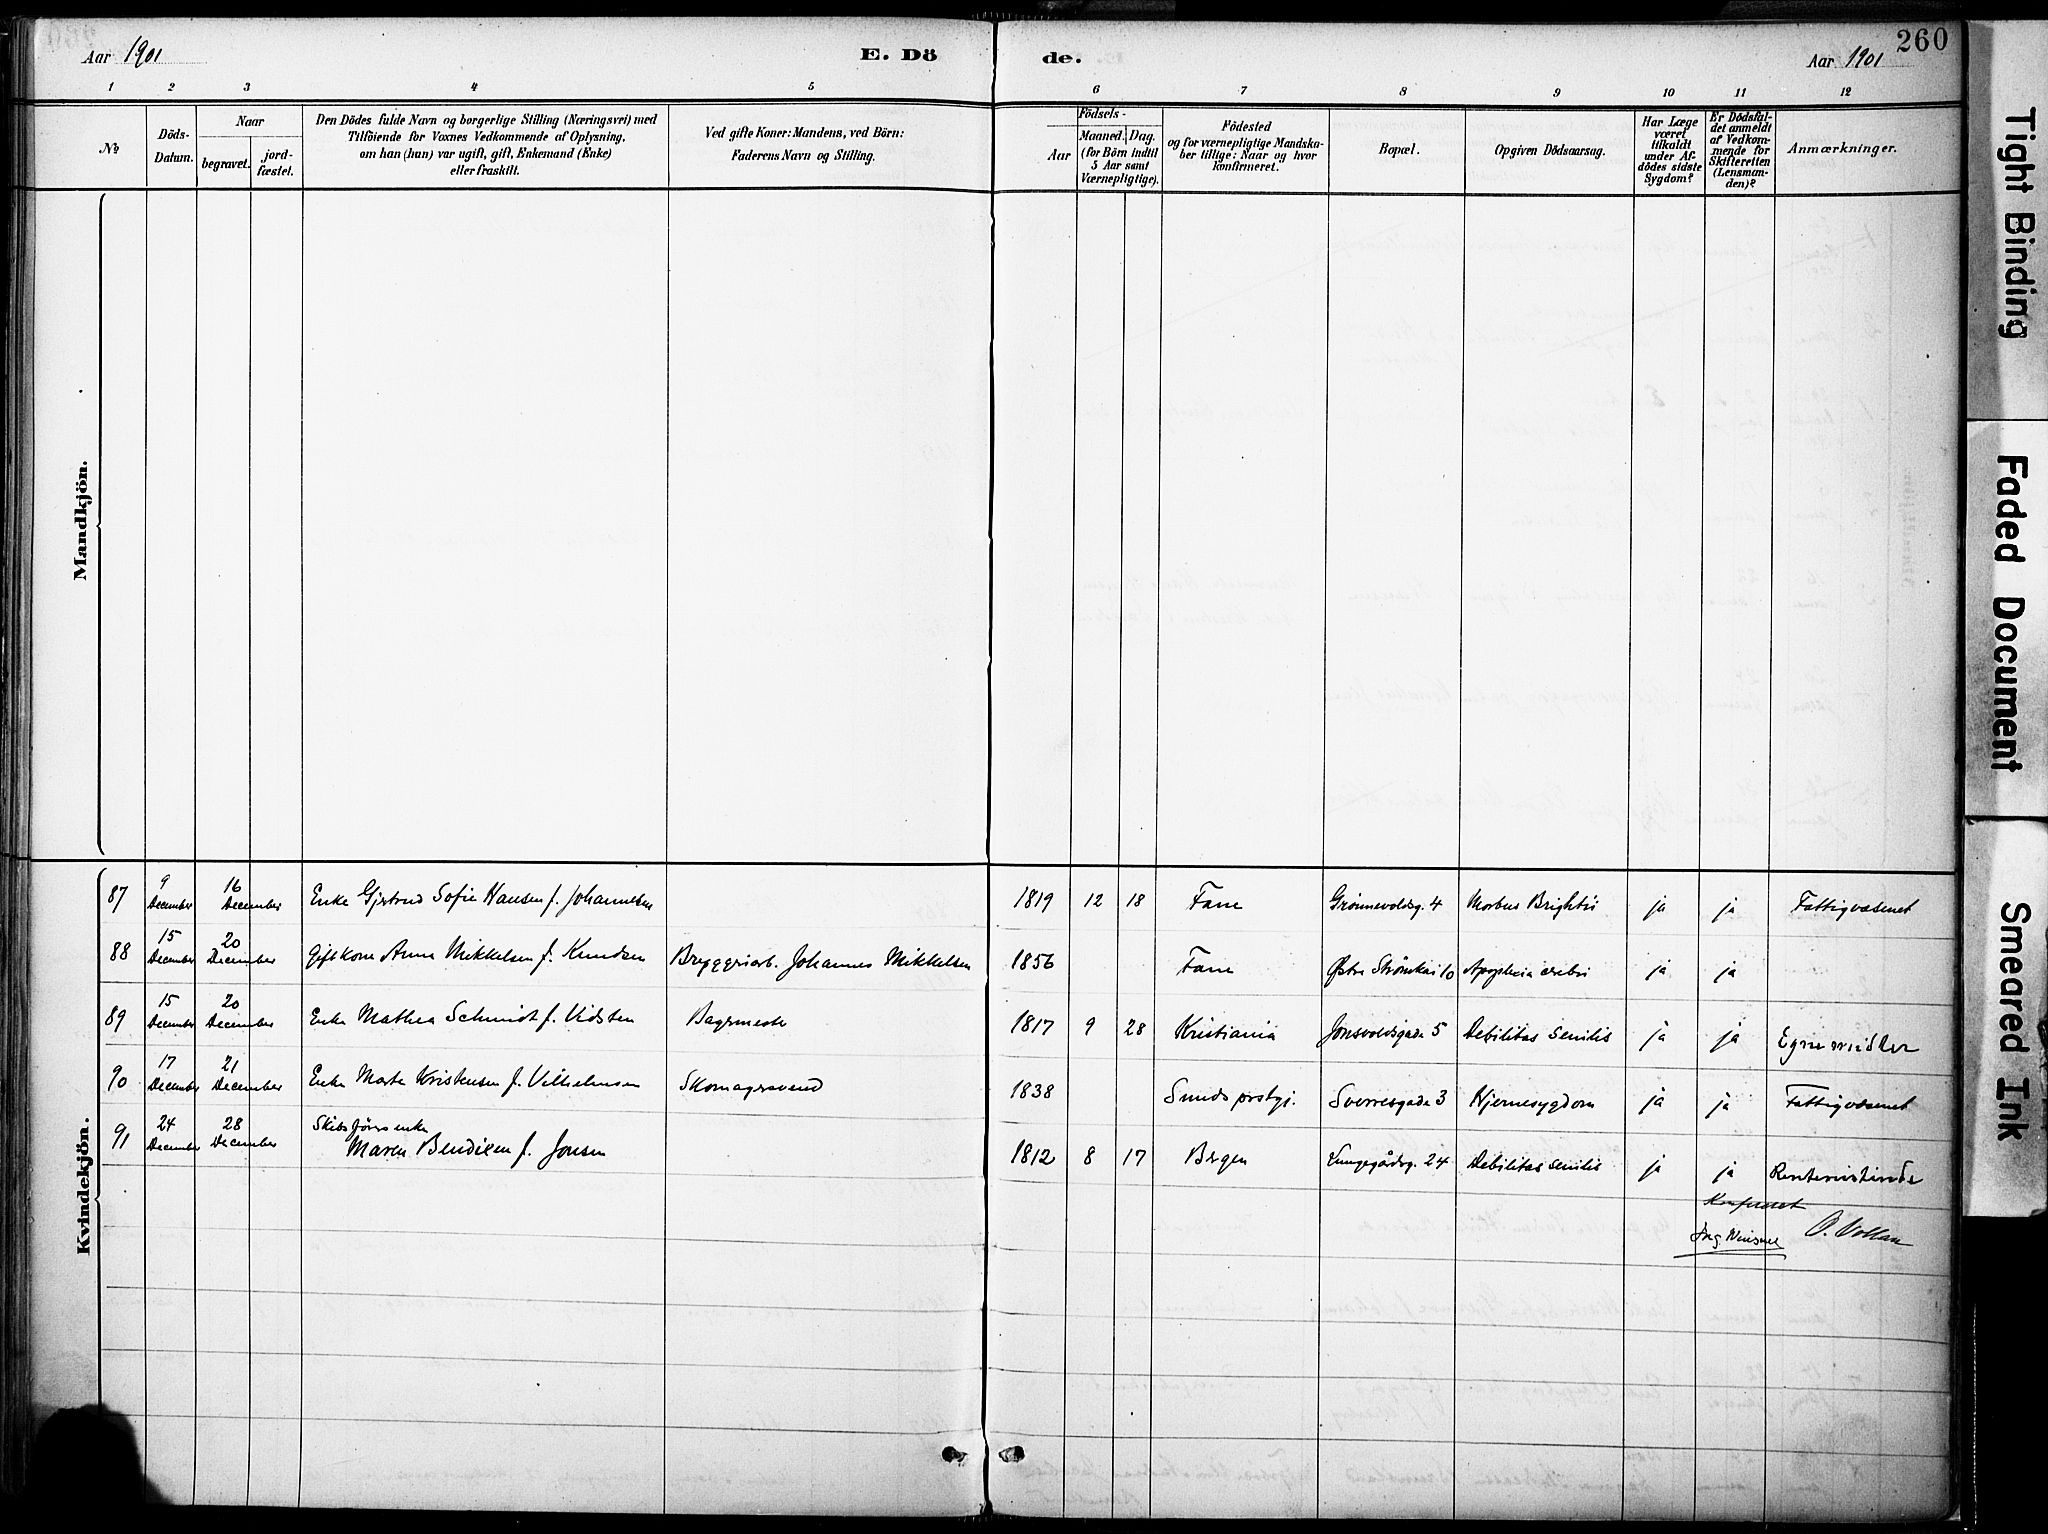 Aar 1901
E. Dö
de.
Aar 1901
260
1 2 3 4 5 6 7 8 9 10 11 12
№
Döds-
Datum.
Naar
begravet.
jord-
fæstet.
Den Dödes fulde Navn og borgerlige Stilling (Næringsvei) med
Tilföiende for Voxnes Vedkommende af Oplysning,
om han (hun) var ugift, gift, Enkemand (Enke)
eller fraskilt.
Ved gifte Koner: Mandens, ved Börn:
Faderens Navn og Stilling.
Födsels-
Aar
Maaned. Dag.
(for Börn indtil
5 Aar samt
Værnepligtige).
Födested
og for værnepligtige Mandska-
ber tillige: Naar og hvor
konfirmeret.
Bopæl.
Opgiven Dödsaarsag.
Har Læge
været
tilkaldt
under Af-
dödes sidste
Sygdom?
Er Dödsfal-
det anmeldt
af Vedkom-
mende for
Skifteretten
(Lensman-
den)?
Anmærkninger.
Mandkjön.
Kvindekjön.
87 9 December 16 December Enke Gjertrud Sofie Hansen f. Johannesen 1819 12 18 Fane Grønnevoldsg. 4 Morbus Brightii ja ja Fattigvæsenet
88 15 December 20 December Gift Kone Anna Mikkelsen f. Knudsen Bryggeriarb. Johannes Mikkelsen 1856 Fane Østre Strømkai 10 Apoplexia cerebri ja ja
89 15 December 20 December Enke Mathea Schmidt f. Vidsten Bagermester 1817 9 28 Kristiania Jonsvoldsgade 5 Debilitas senilis ja ja Egne midler
90 17 December 21 December Enke Marte Kristensen f. Vilhelmsen Skomagersvend 1838 Sunds prstgj. Sverresgade 3 Hjernesygdom ja ja Fattigvæsenet
91 24 December 28 December Skibsførerenke
Maren Bendixen f. Jonsen 1812 8 17 Bergen Lungegårdsg. 24 Debilitas senilis ja ja Rentenistinde
O. Vollan
Tight Binding
Faded Document
Smeared Ink